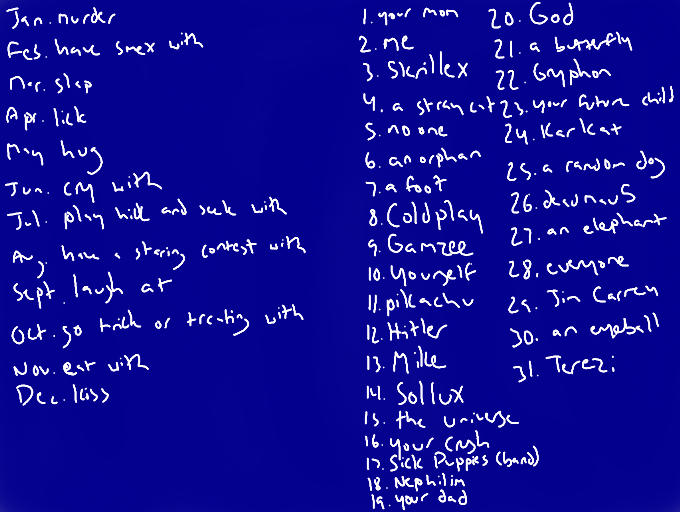 Jan. murder
Feb. have smex with
Mar. slap
Apr. lick
May hug
Jun. cry with
Jul. play hide and seek with
Aug. have a staring contest with
Sept. laugh at
Oct. go trick or treating with
Nov. eat with
Dec. kiss
1. your mom
2. me
3. Skrillex
4. a stray cat
5. no one
6. an orphan
7. a foot
8. Coldplay
9. Gamzee
10. yourself
11. pikachu
12. Hitler
13. Mike
14. Sollux
15. the universe
16. your crush
17. Sick Puppies (band)
18. Nephilim
19. your dad
20. God
21. a butterfly
22. Gryphon
23. your future child
24. KarKat
25. a random dog
26. deadmau5
27. an elephant
28. everyone
29. Jim Carrey
30. an eyeball
31. Terezi